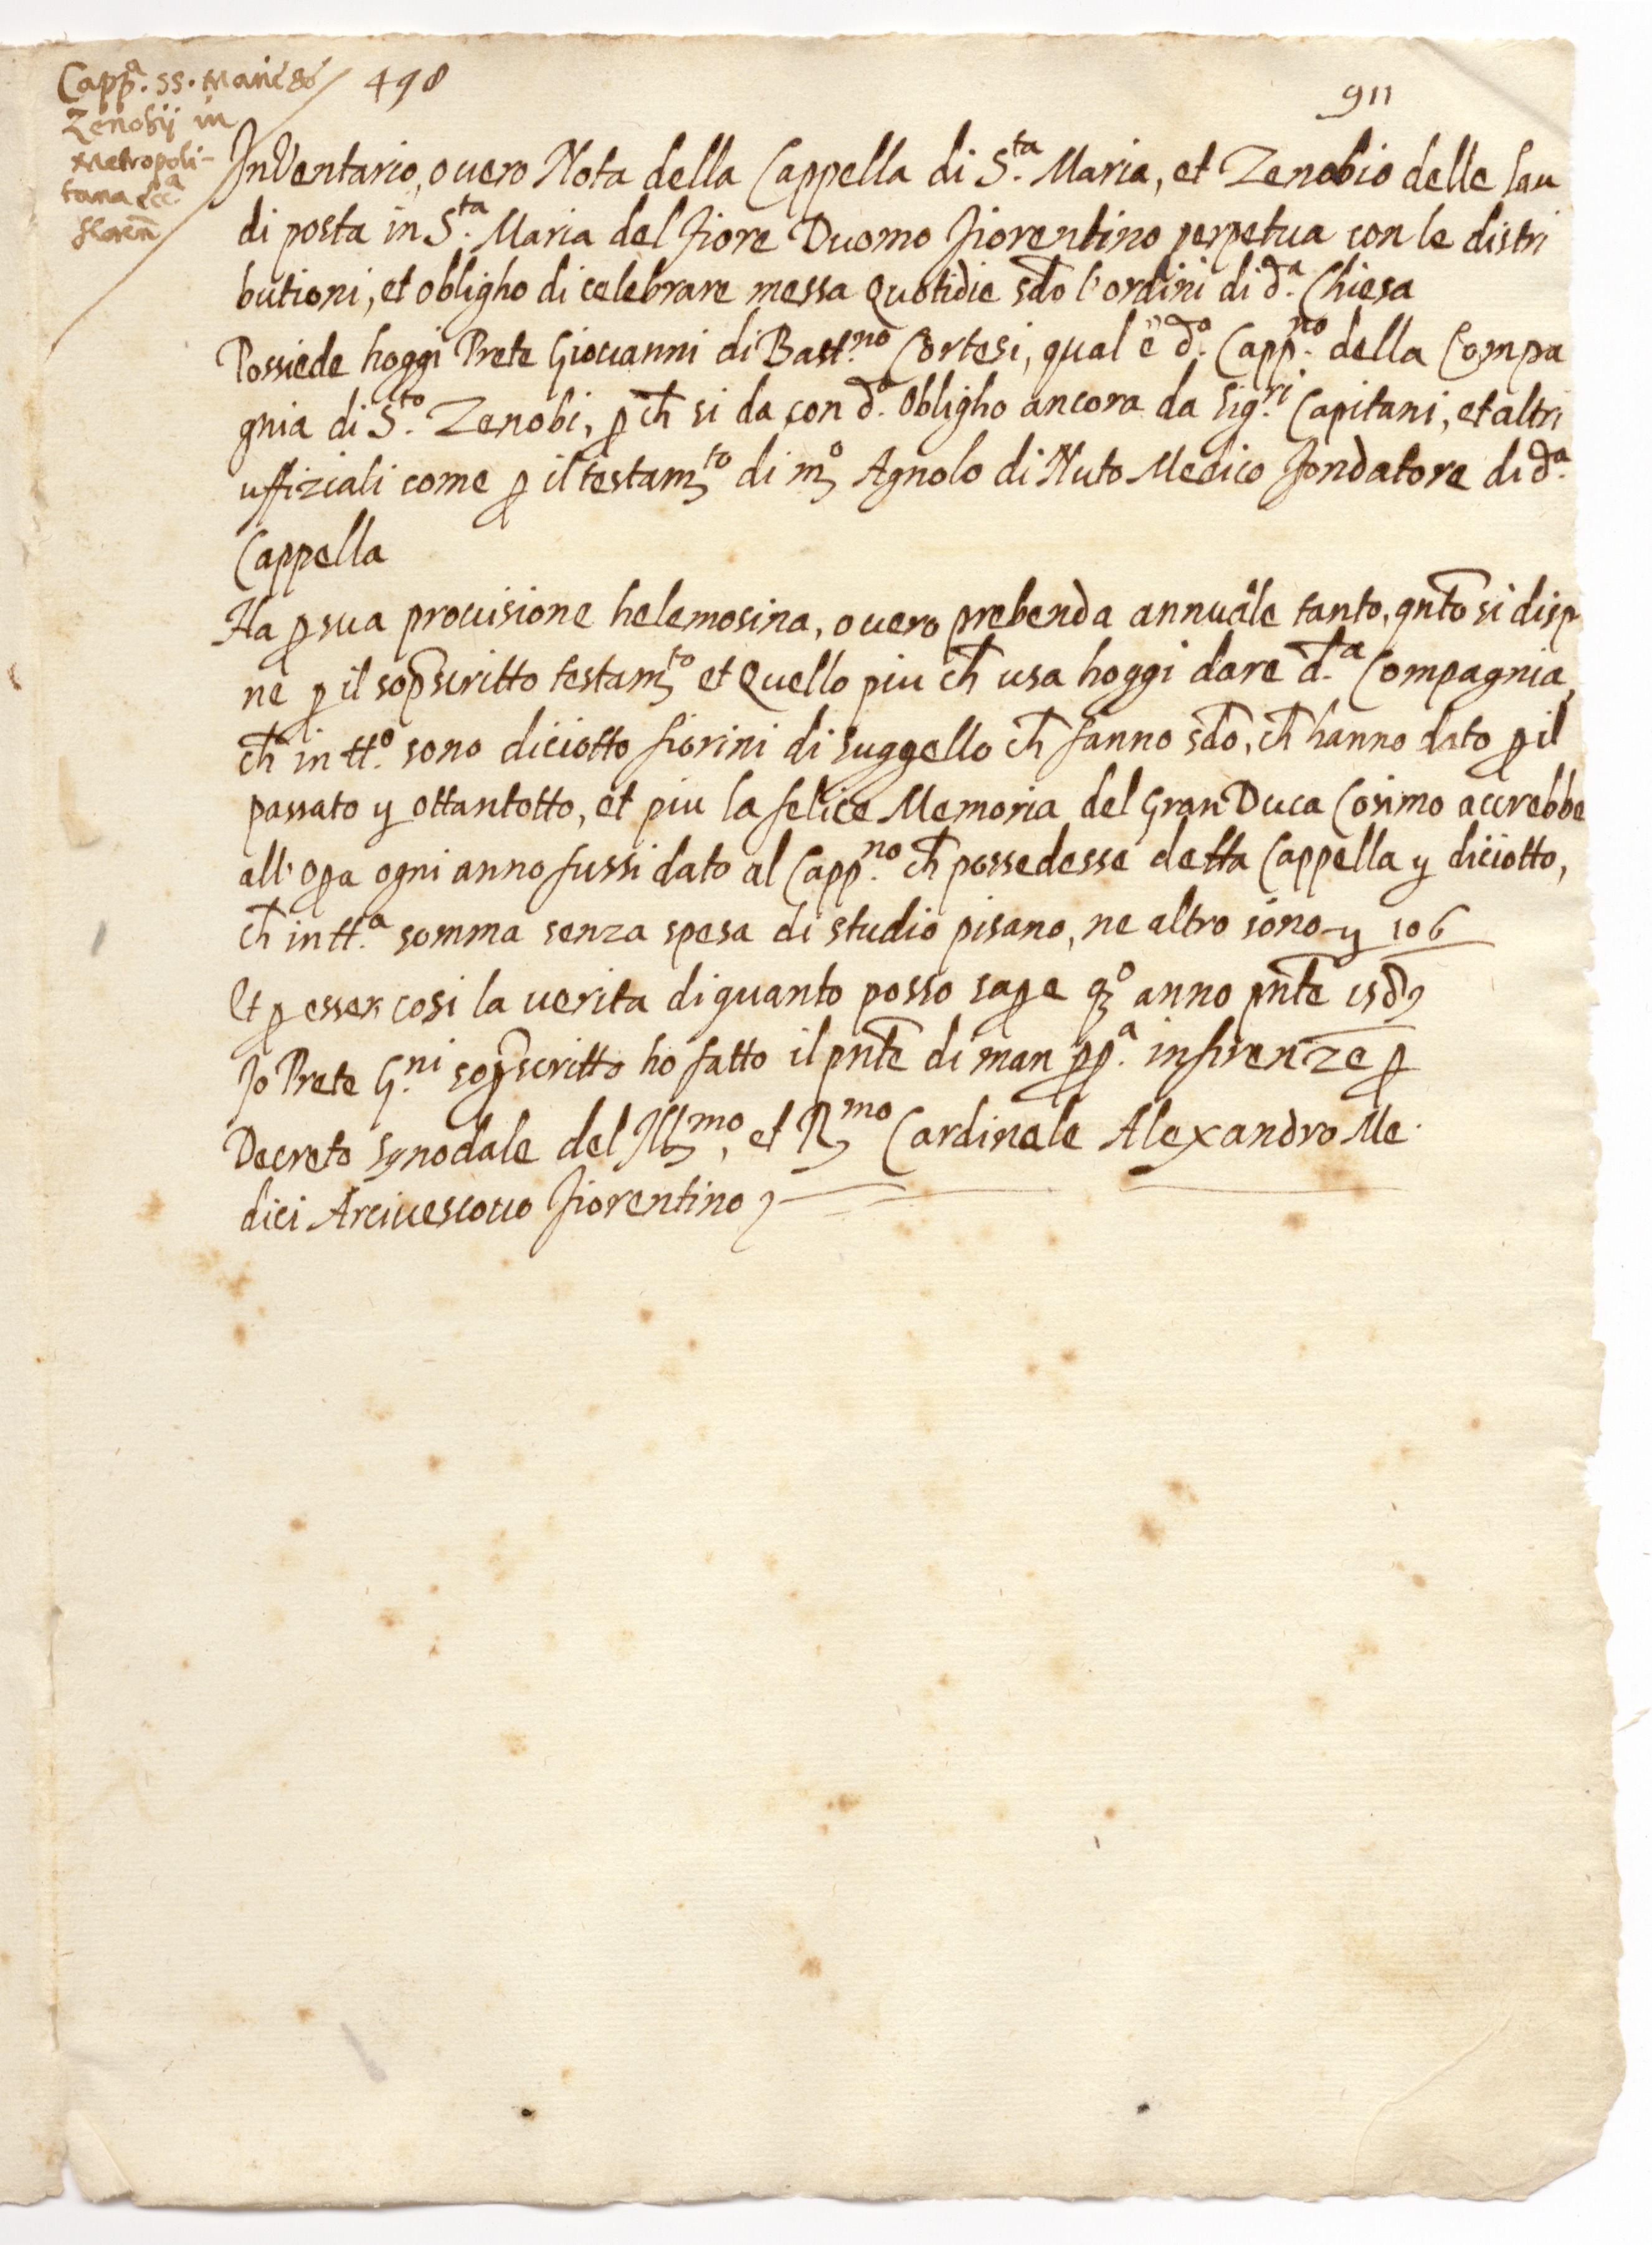 Capp.ª SS. Marie &
Zenobij in
Metropoli-
tana Ecc.ª
floren̄
498
911
InVentario, ouero Nota della Cappella di S.ta Maria, et Zenobio delle lau
di posta in S.ta Maria del fiore Duomo fiorentino perpetua con le distri
butioni, et obligho di celebrare messa Quotidie sd̄o l'ordini di d.ª Chiesa
Possiede hoggi Prete Giouanni di Bast.no Cortesi, qual'è d.º Capp.no della Compa
gnia di S.to Zenobi, ꝑ ch̄ si da con d.º obligho ancora da Sig.ri Capitani, et altri
uffiziali come ꝑ il testam.to di m.º Agnolo di Nuto Medico fondatore di d.ª
Cappella
Ha ꝑ sua prouisione helemosina, ouero prebenda annuale tanto, qnt̄o si disp
ne ꝑ il sop̄scritto testam.to et Quello piu ch̄ usa hoggi dare d.ª Compagnia,
ch̄ in tt.º sono diciotto fiorini di suggello ch̄ fanno sd̄o, ch̄ hanno dato ꝑ il
passato ɥ ottantotto, et piu la felice Memoria del Gran Duca Cosimo accrebbe
all'oꝑa ogni anno fussi dato al Capp.no ch̄ possedesse detta Cappella ɥ diciotto,
ch̄ in tt.ª somma senza spesa di studio pisano, ne altro sono - ɥ 106
Et ꝑ esser cosi la uerita di quanto posso saꝑe q.º anno pn̄te
Jo Prete G.ni sop̄scritto ho fatto il pn̄te di man ꝓp.ª in firenze ꝑ
Decreto synodale del Ill.mo, et R.mo Cardinale Alexandro Me
dici Arciuescouo fiorentino